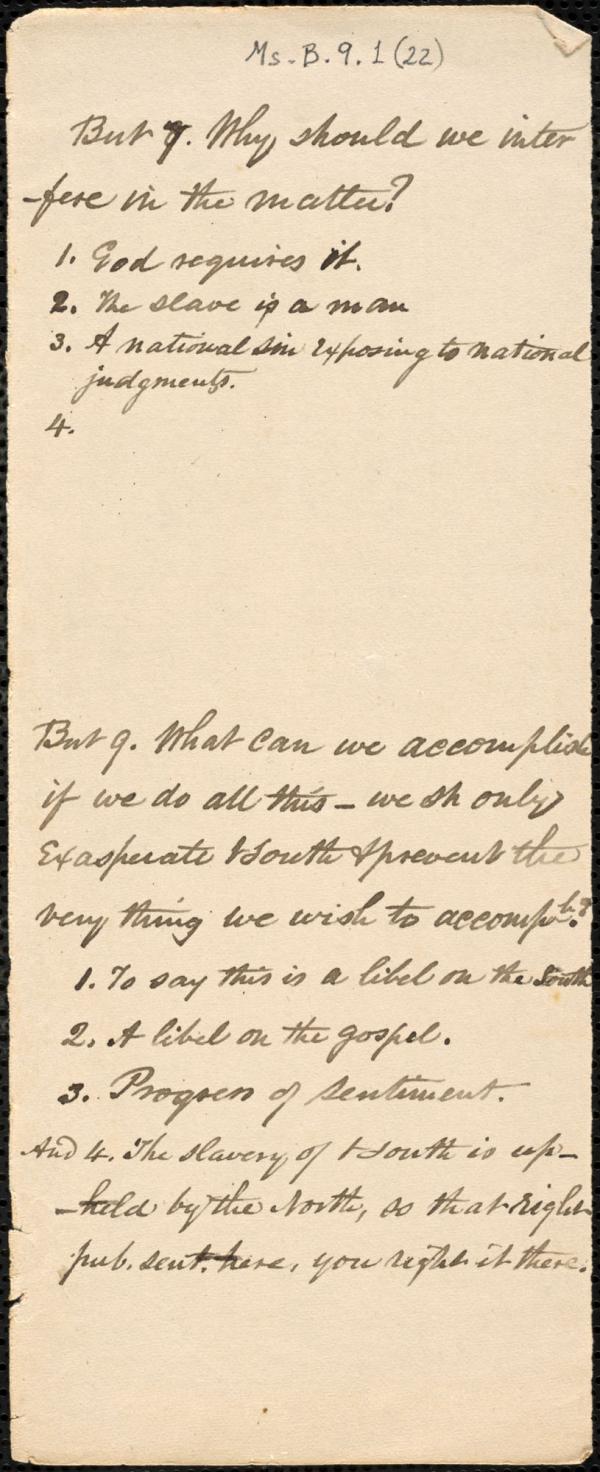 Ms. B. 9. 1 (22)
But 8. Why should we inter
-fere in the matter?
1. God requires it.
2. The slave is a man
3. A national sin exposing to national
judgments.
4.
But 9. What can we accomplish
if we do all this - we sh only
exasperate t South & prevent the
very thing we wish to accompsh.?
1. To say this is a libel on the South
2. A libel on the gospel.
3. Progress of sentiment.
And 4. The slavery of t South is up-
-held by the North, so that right
pub. sent. here, you right it there.